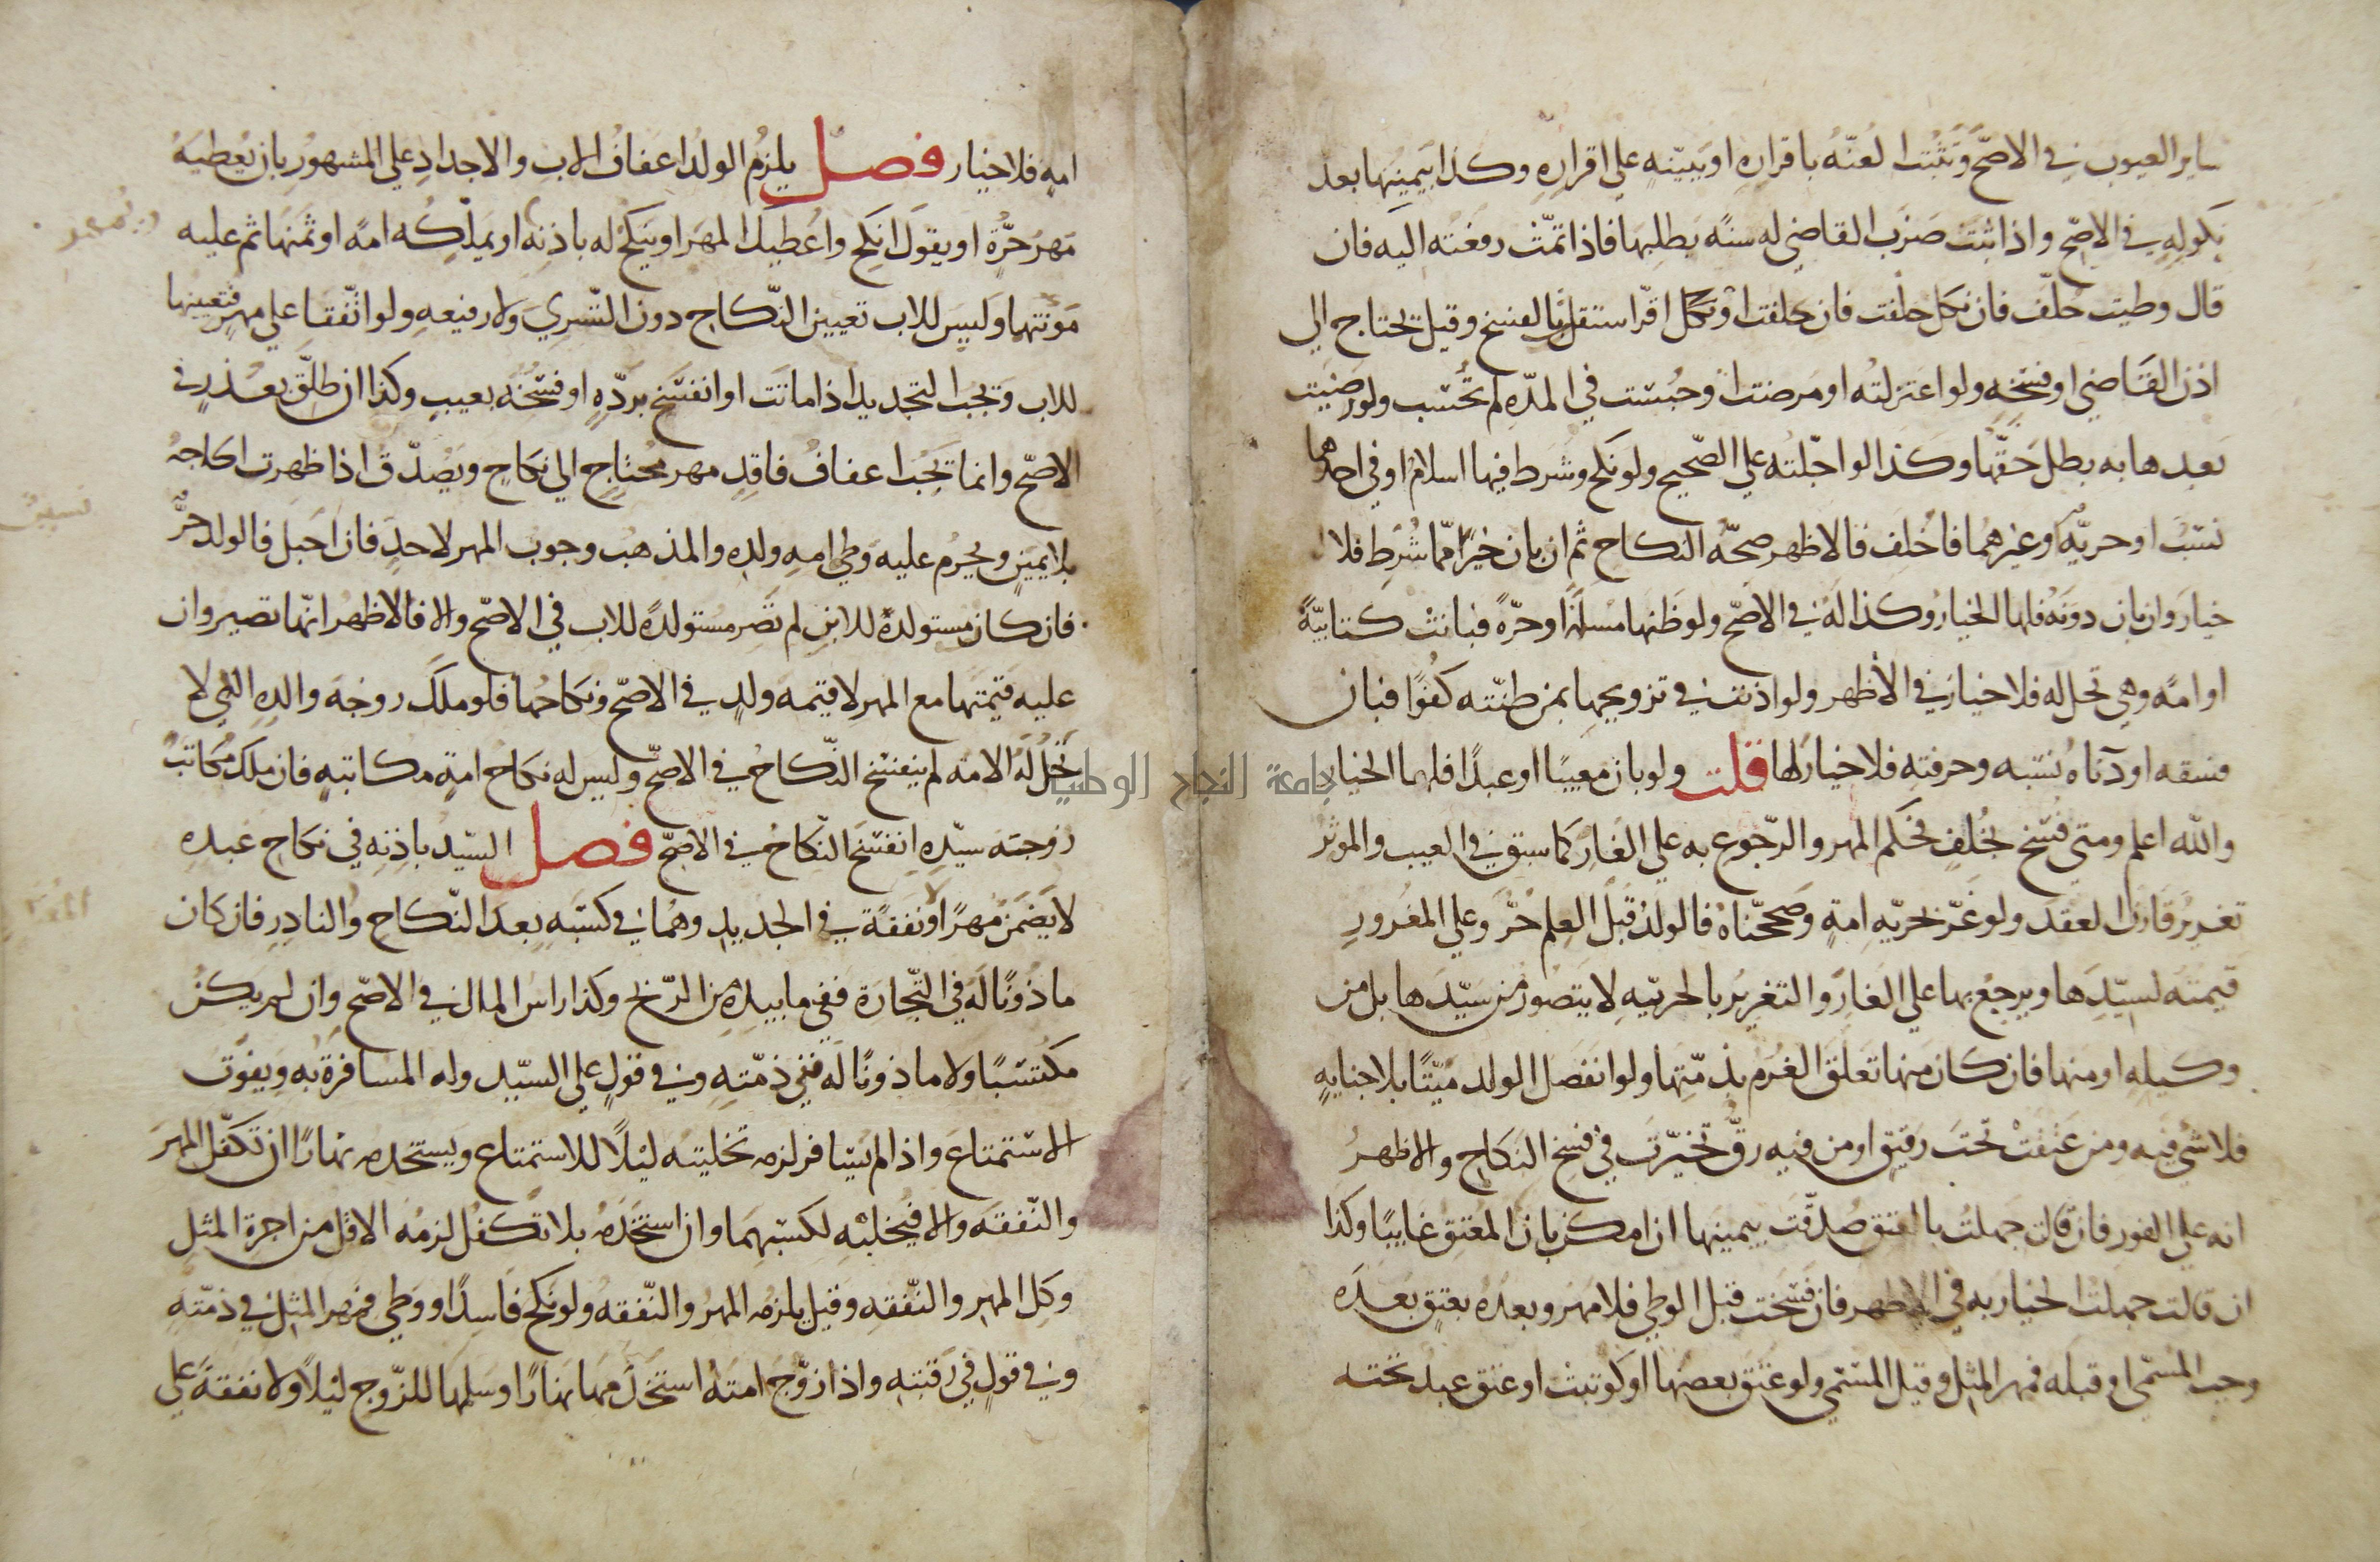 ساير العيوب في الاصح وتثبت العنه باقراره او ببينه علي اقراره وكذا بيمينها بعد
نكوله في الاصح واذا ثبتت ضرب القاضي له سنة بطلبها فاذا تمت رفعته اليه فان
قال وطيت حلف فان نكل حلفت فان حلفت او نكل اقر استقلت بالفسخ وقيل تحتاج الي
اذن القاضي او فسخه ولو اعتزلته او مرضت او حبست في المده لم تحسب ولو رضيت
بعدها به بطل حقها وكذا لو اجلته علي الصحيح ولو نكح وشرط فيها اسلام او في احدهما
نسب او حريه او غيرهما فاخلف فالاظهر صحه النكاح ثم ان بان خيرا مما شرط فلا
خيار وان بان دونه فلها الخيار وكذا له في الاصح ولو ظنها مسلمة او حرة فبانت كتابية
او امة وهي تحل له فلا خيار في الاظهر ولو اذنت في تزويجها بمن ظنته كفوا فبان
فسقه او دناه نسبه وحرفته فلا خيار لها قلت ولو بان معيبا او عبدا فلها الخيار
والله اعلم ومتي فسخ بخلف فحكم المهر والرجوع به علي الغار كما سبق في العيب والموثر
تغرير قارن العقد ولو غر بحريه امة وصححناه فالولد قبل العلم حر وعلي المغرور
قيمته لسيدها ويرجع بها علي الغار والتغرير بالحريه لا يتصور من سيدها بل من
وكيله او منها فان كان منها تعلق الغرم بذمتها ولو انفصل الولد ميتا بلا جنايه
فلا شي فيه ومن عتقت تحت رقيق او من فيه رق تخيرت في فسخ النكاح والاظهر
انه علي الفور فان قالت جهلت بالعتق صدقت بيمينها ان امكن بان المعتق غايبا وكذا
ان قالت جهلت الخيار به في الاظهر فان فسخت قبل الوطي فلا مهر وبعده بعتق بعده
وجب المسمي او قبله فمهر المثل وقيل المسمي ولو عتق بعضها او كوتبت او عتق عبد تحته
امه فلا خيار فصل يلزم الولد اعفاف الاب والاجداد علي المشهور بان يعطيه
مهر حرة او يقول انكح واعطيك المهر او ينكح له باذنه او يملكه امة او ثمنها ثم عليه
مونتها وليس للاب تعيين النكاح دون التسري ولا رفيعه ولو اتفقا علي مهر فتعيينها
للاب وتجب التجديد اذا ماتت او انفسخ بردة او فسخه بعيب وكذا ان طلق بعذر في
الاصح وانما تجب اعفاف فاقد مهر محتاج الي نكاح ويصدق اذا ظهرت الحاجه
بلا يمين ويحرم عليه وطي امه ولده والمذهب وجوب المهر لا حد فان احبل فالولد حر
فان كان مستولدة للابن لم تصر مستولدة للاب في الاصح والا فالاظهر انها تصير وان
عليه قيمتها مع المهر لا قيمه ولد في الاصح ونكاحها فلو ملك زوجه والده التي لا
تحل له الامه لم ينفسخ النكاح في الاصح وليس له نكاح امة مكاتبه فان ملك مكاتب
زوجته سيده انفسخ النكاح في الاصح فصل السيد باذنه في نكاح عبده
لا يضمن مهرا ولا نفقة في الجديد وهما في كسبه بعد النكاح والنادر فان كان
ماذونا له في التجارة ففي ما بيده من الربح وكذا راس المال في الاصح وان لم يكن
مكتسبا ولا ماذونا له ففي ذمته وفي قول علي السيد وله المسافرة به ويفوت
الاستمتاع واذا لم يسافر لزمه تخليته ليلا للاستمتاع ويستخدمه نهارا ان تكفل المهر
والنفقه والا فيخليه لكسبهما وان استخدمه بلا تكفل لزمه الاقل من اجرة المثل
وكل المهر والنفقه وقيل يلزمه المهر والنفقه ولو نكح فاسدا ووطي فمهر المثل في ذمته
وفي قول في رقبته واذا زوج امته استخدمها نهارا وسلمها للزوج ليلا ولا نفقة علي
جامعة النجاح الوطنية